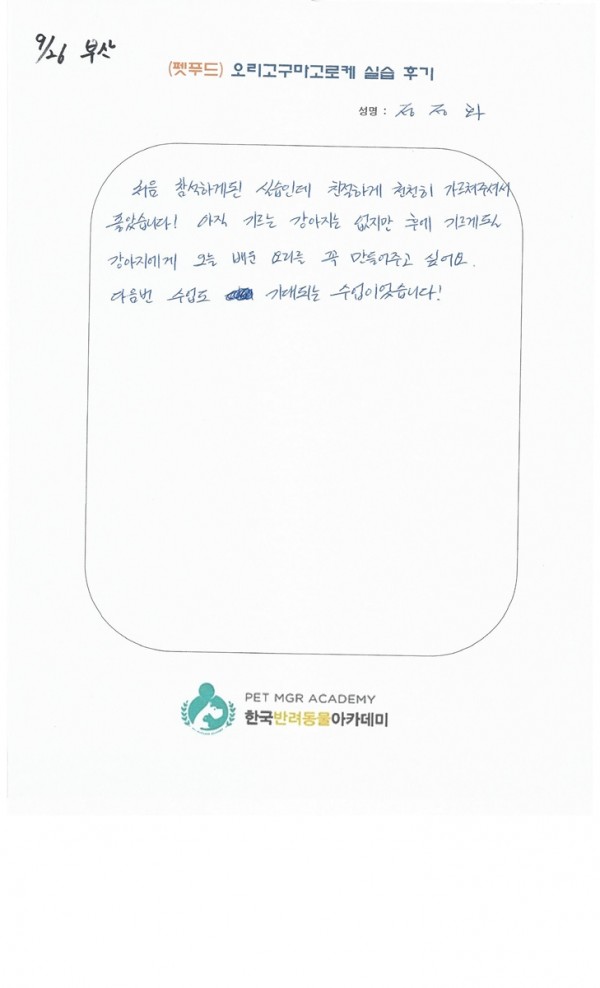 9/26 부산
(펫푸드) 오리고구마고로케 실습 후기
성명 : 정정화
처음 참석하게된 실습인데 친절하게 천천히 가르쳐주셔서
좋았습니다! 아직 기르는 강아지는 없지만 후에 기르게되는
강아지에게 오늘 배운 요리를 꼭 만들어주고 싶어요.
다음번 수업도 기대되는 수업이었습니다!
PET MGR ACADEMY
한국반려동물아카데미